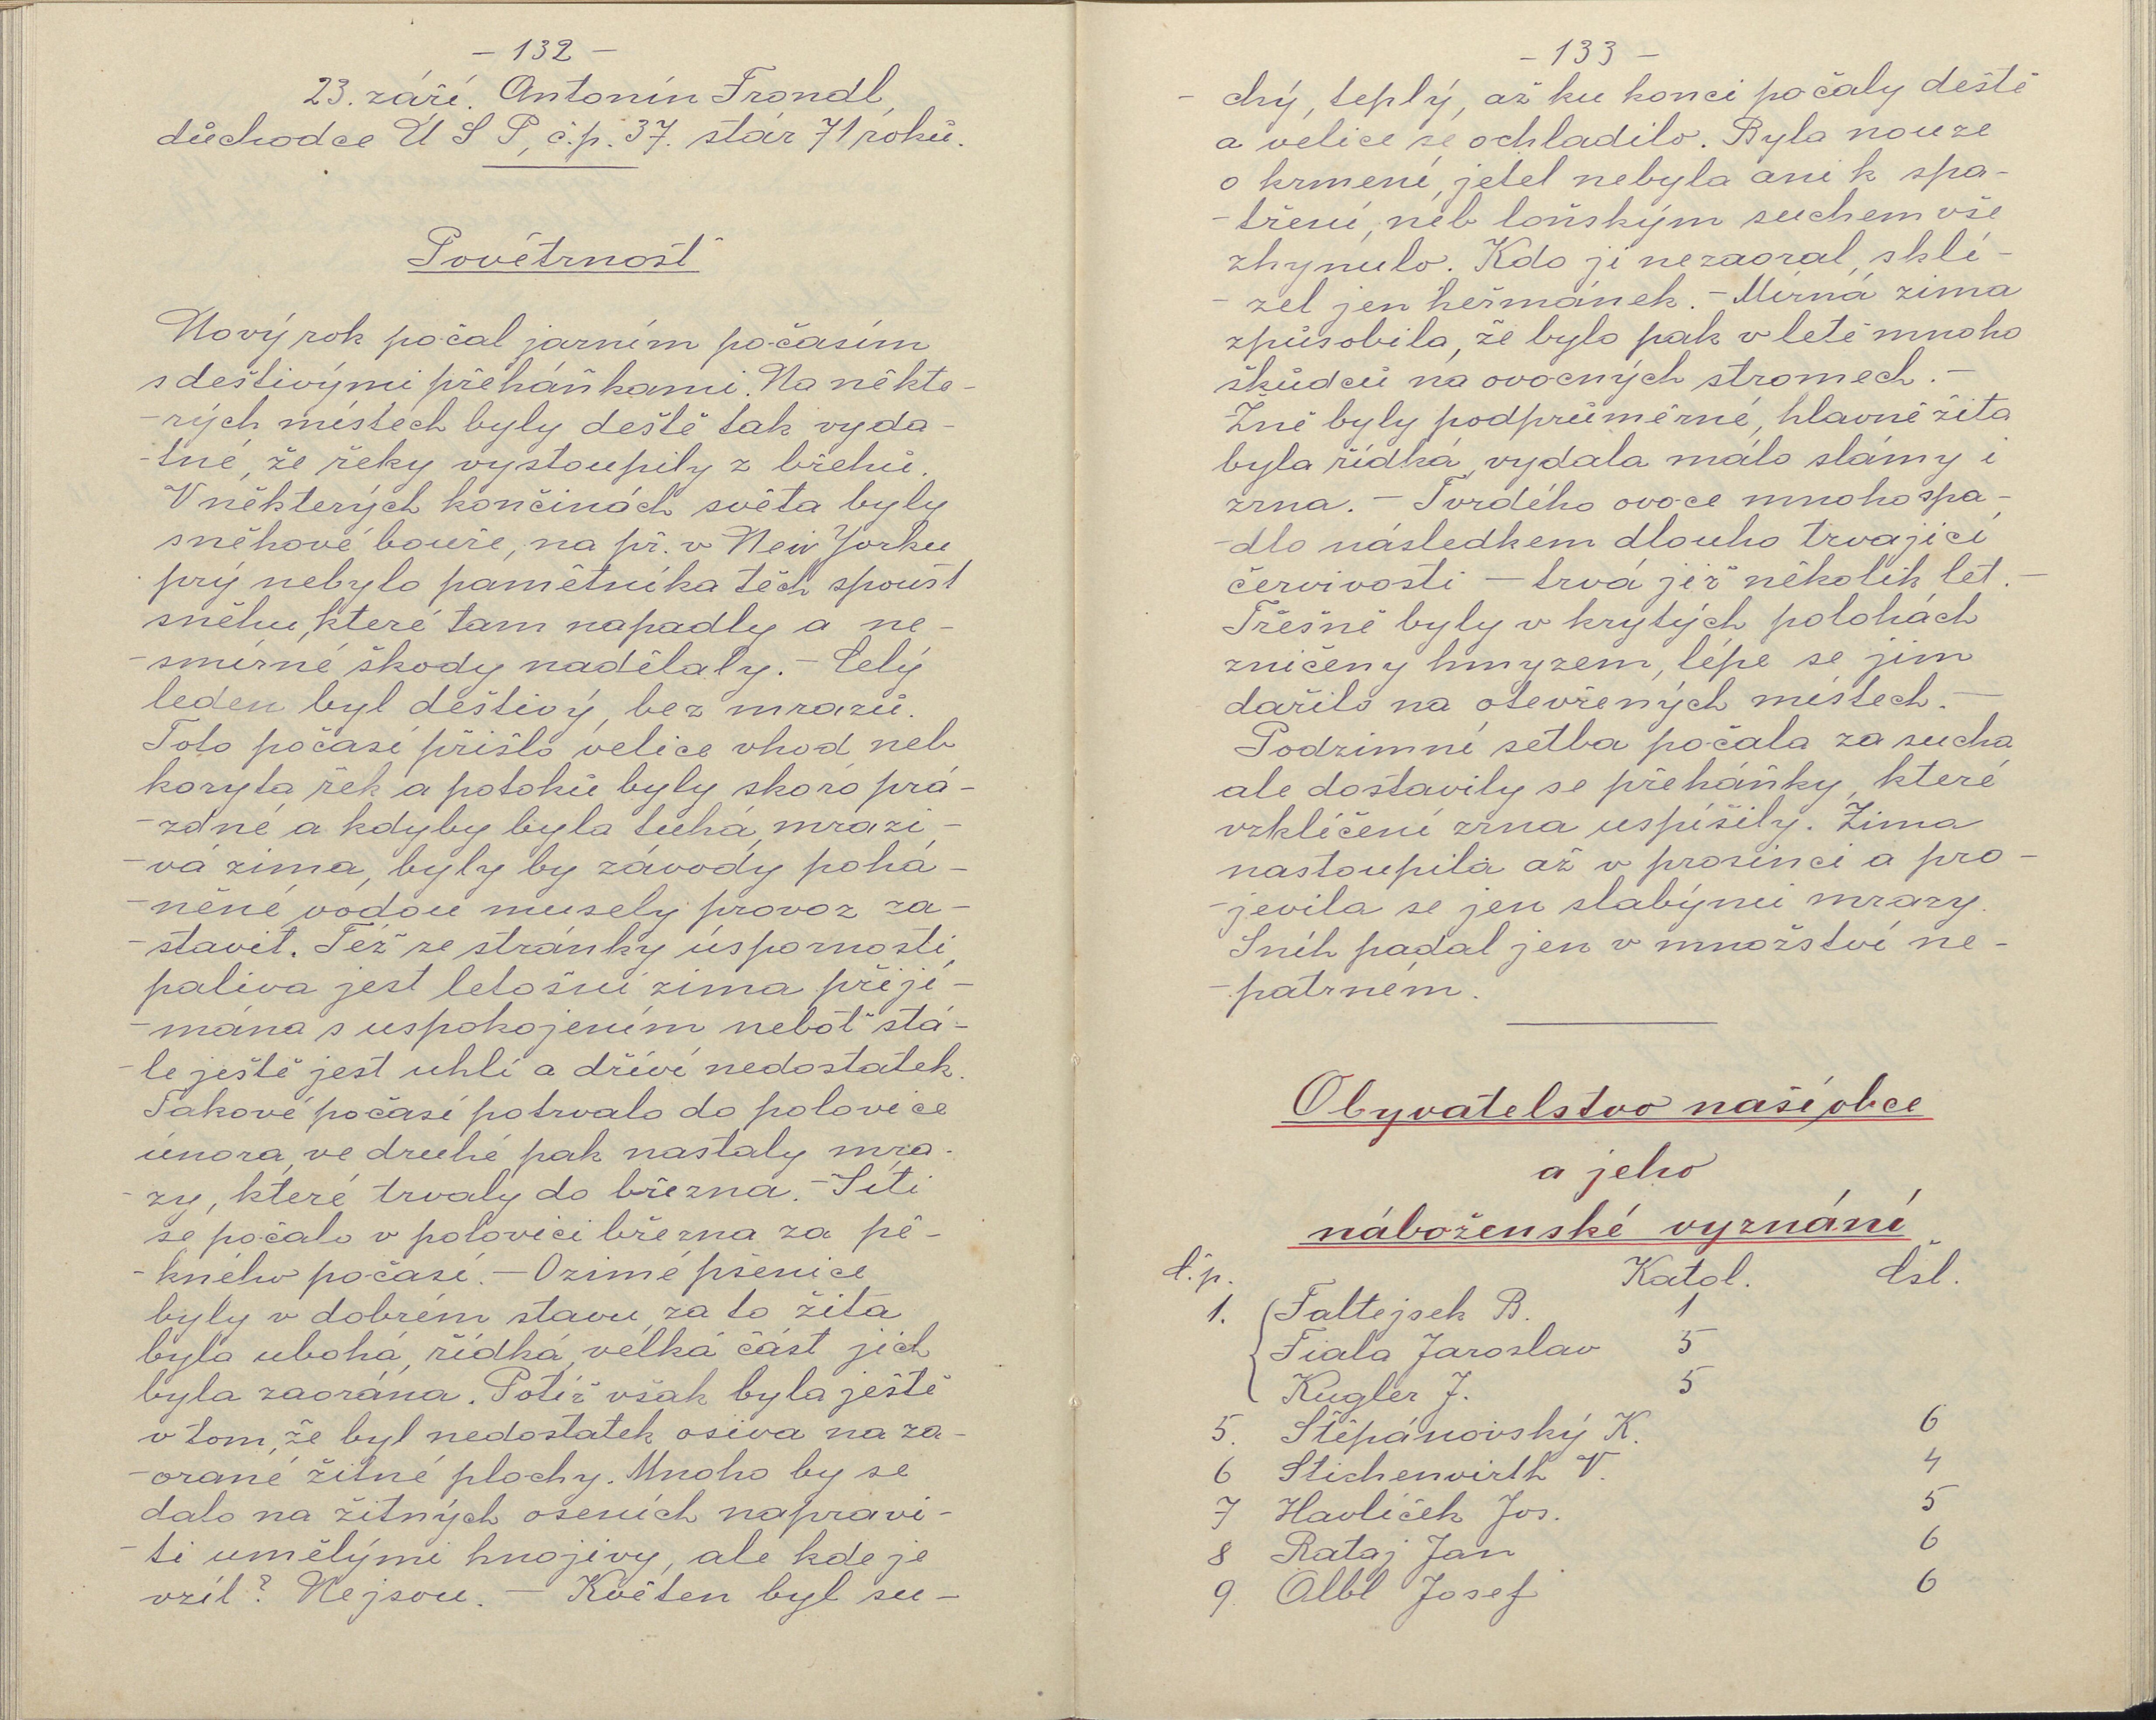 - 132 -
23. září. Antonín Frondl,
důchodce Ú S P, č.p. 37. stár 71 roků.
Povětrnosť
Nový rok počal jarním počasím
s deštivými přeháňkami. Na někte-
-rých místech byly deště tak vyda-
-tné, že řeky vystoupily z břehů.
V některých končinách světa byly
sněhové bouře, na př. v New Yorku
prý nebylo pamětníka těch spoust
sněhu, které tam napadly a ne-
-smírné škody nadělaly. - Celý
leden byl deštivý, bez mrazů.
Toto počasí přišlo velice vhod neb
koryta řek a potoků byly skoro prá-
-zdné a kdyby byla tuhá, mrazi-
-vá zima, byly by závody pohá-
-něné vodou musely provoz za-
-stavit. Též ze stránky úspornosti
paliva jest letošní zima přijí-
-mána s uspokojením neboť stá-
-le ještě jest uhlí a dříví nedostatek.
Takové počasí potrvalo do polovice
února, ve druhé pak nastaly mra-
-zy, které trvaly do března. - Síti
se počalo v polovici března za pě-
-kného počasí. - Ozimé pšenice
byly v dobrém stavu, za to žita
byla ubohá, řídká, velká část jich
byla zaorána. Potíž však byla ještě
v tom, že byl nedostatek osiva na za-
-orané žitné plochy. Mnoho by se
dalo na žitných oseních napravi-
-ti umělými hnojivy, ale kde je
vzít? Nejsou. - Květen byl su-
- 133 -
- chý, teplý, až ku konci počaly deště
a velice se ochladilo. Byla nouze
o krmení, jetel nebyla ani k spa-
-tření, neb loňským suchem vše
zhynulo. Kdo ji nezaoral, sklí-
- zel jen heřmánek. - Mírná zima
způsobila, že bylo pak v létě mnoho
škůdců na ovocných stromech. -
Žně byly podprůměrné, hlavně žita
byla řídká, vydala málo slámy i
zrna. - Tvrdého ovoce mnoho spa-
-dlo následkem dlouho trvající
červivosti - trvá již několik let. -
Třešně byly v krytých polohách
zničeny hmyzem, lépe se jim
dařilo na otevřených místech. -
Podzimní setba počala za sucha
ale dostavily se přeháňky, které
vzklíčení zrna uspíšily. Zima
nastoupila až v prosinci a pro-
-jevila se jen slabými mrazy.
Sníh padal jen v množství ne-
-patrném.
Obyvatelstvo naší obce
a jeho
náboženské vyznání
č.p. Katol. Čsl.
1. Faltejsek B. 1
Fiala Jaroslav 5
Kugler J. 5
5. Štěpánovský K. 6
6 Stichenwirth V. 4
7 Havlíček Jos. 5
8 Rataj Jan 6
9. Olbl Josef 6